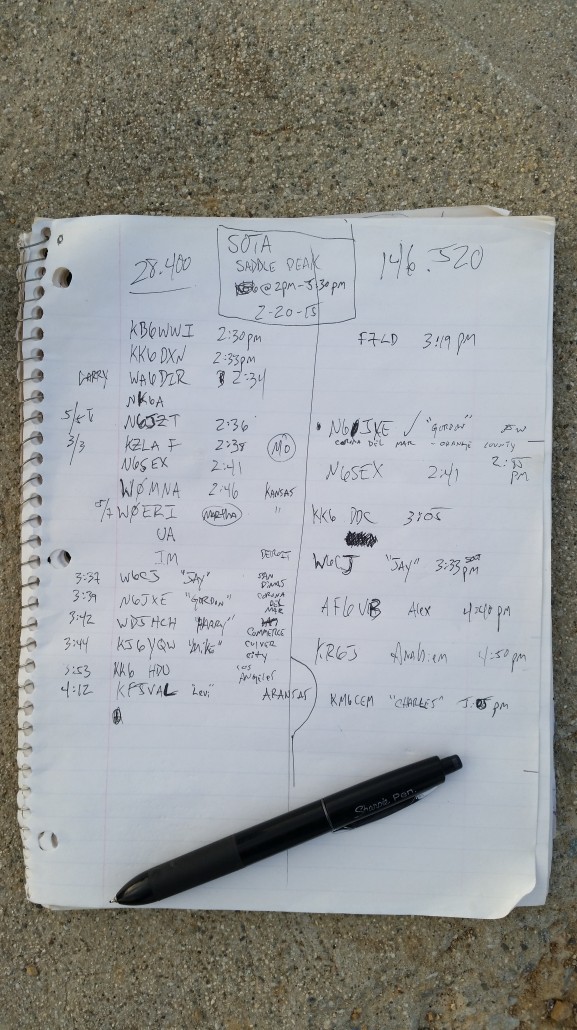 28.400
SOTA
SADDLE PEAK
@ 2pm-5:30pm
2-20-15
146.520
KB6WWI 2:30pm
KK6DXN 2:33pm
LARRY WA6DLR 2:34
NK6A
N6JZT 2:36
3/3 KZLA F 2:38 MO
N6SEX 2:41
WØMNA 2:46 KANSAS
5/7 WØERI MARTHA "
UA
IM DETROIT
3:37 W6CJ "JAY" SAN DIMAS
3:39 N6JXE "GORDON" CORONA DEL MAR
3:42 WD5HCH "HARRY" COMMERCE
3:44 KJ6YQW "MIKE" CULVER CITY
3:53 KK6 HDU LOS ANGELES
4:12 KF5VAL "Levi" ARANSAS
F7LD 3:19 PM
N6JXE ✓ "GORDON"
CORONA DEL MAR - ORANGE COUNTY
N6SEX 2:41
PM
KK6 DDC 3:05
W6CJ "JAY" 3:33 pm
AF6VB Alex 4:40 pm
KR6J 4:50 pm
KM6CEM "CHARLES" pm
Sharpie. Pen.